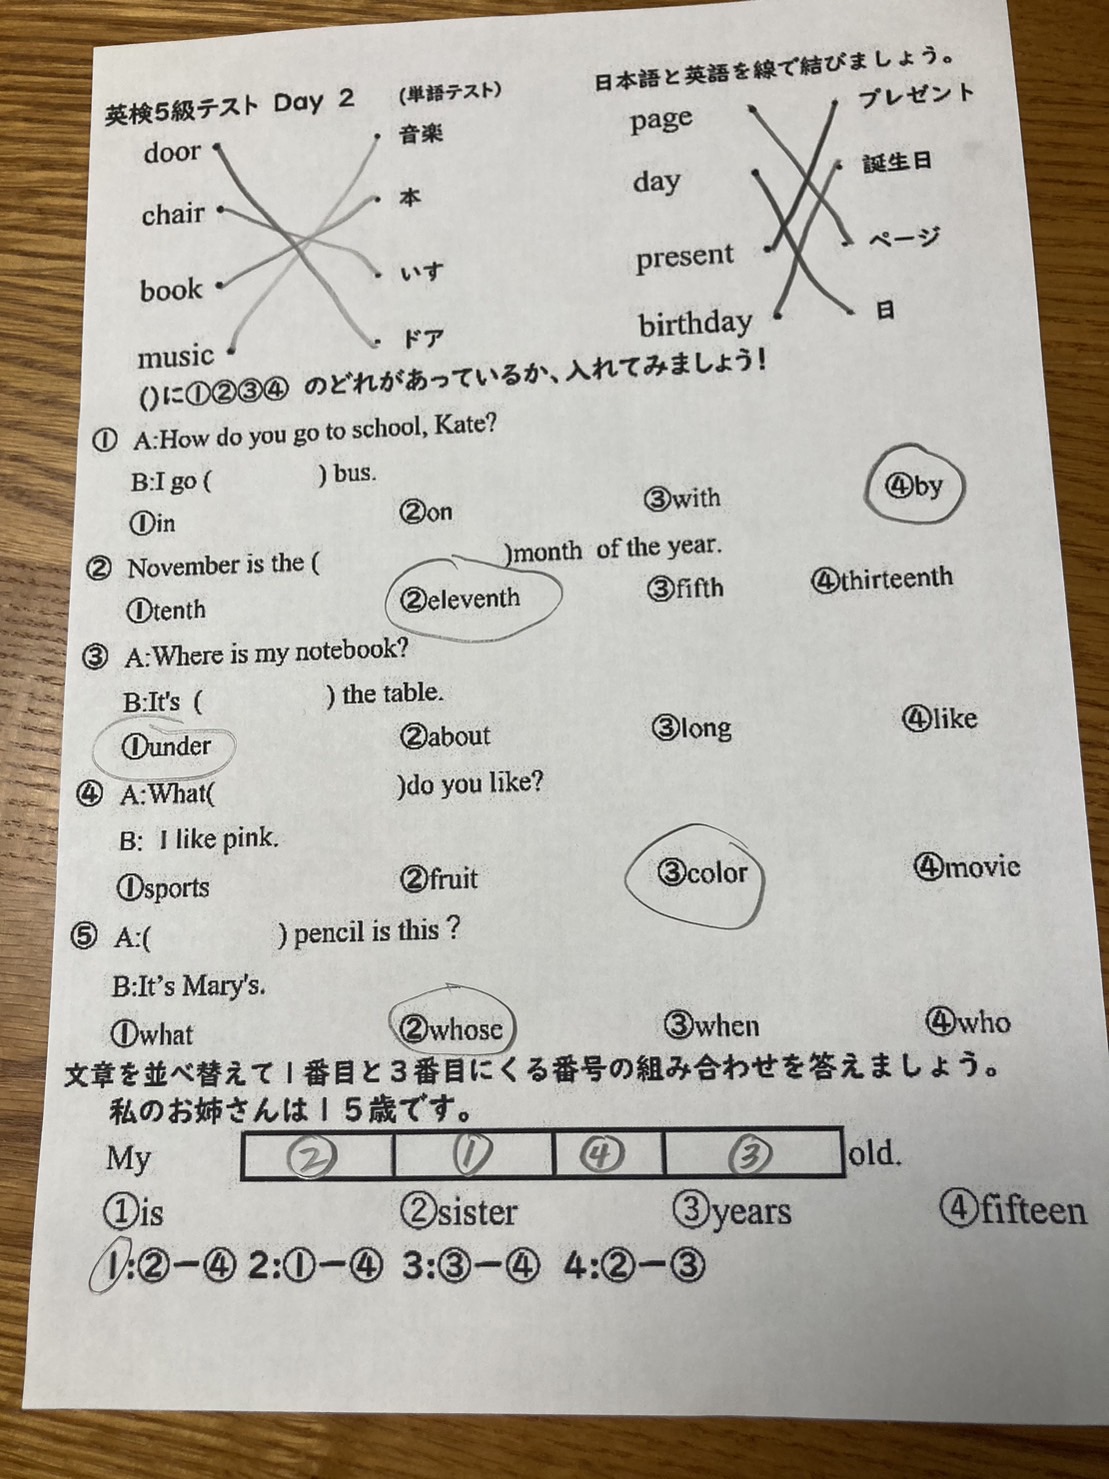 英検5級テスト Day 2 (単語テスト)
door 音楽
chair 本
book いす
music ドア
日本語と英語を線で結びましょう。
page プレゼント
day 誕生日
present ページ
birthday 日
()に①②③④ のどれがあっているか、入れてみましょう!
① A:How do you go to school, Kate?
B:I go ( ) bus.
①in ②on ③with ④by
② November is the ( )month of the year.
①tenth ②eleventh ③fifth ④thirteenth
③ A:Where is my notebook?
B:It's ( ) the table.
①under ②about ③long ④like
④ A:What( )do you like?
B: I like pink.
①sports ②fruit ③color ④movie
⑤ A:( ) pencil is this ?
B:It’s Mary's.
①what ②whose ③when ④who
文章を並べ替えて1番目と3番目にくる番号の組み合わせを答えましょう。
私のお姉さんは15歳です。
My ② ① ④ ③ old.
①is ②sister ③years ④fifteen
1:②ー④ 2:①ー④ 3:③ー④ 4:②ー③